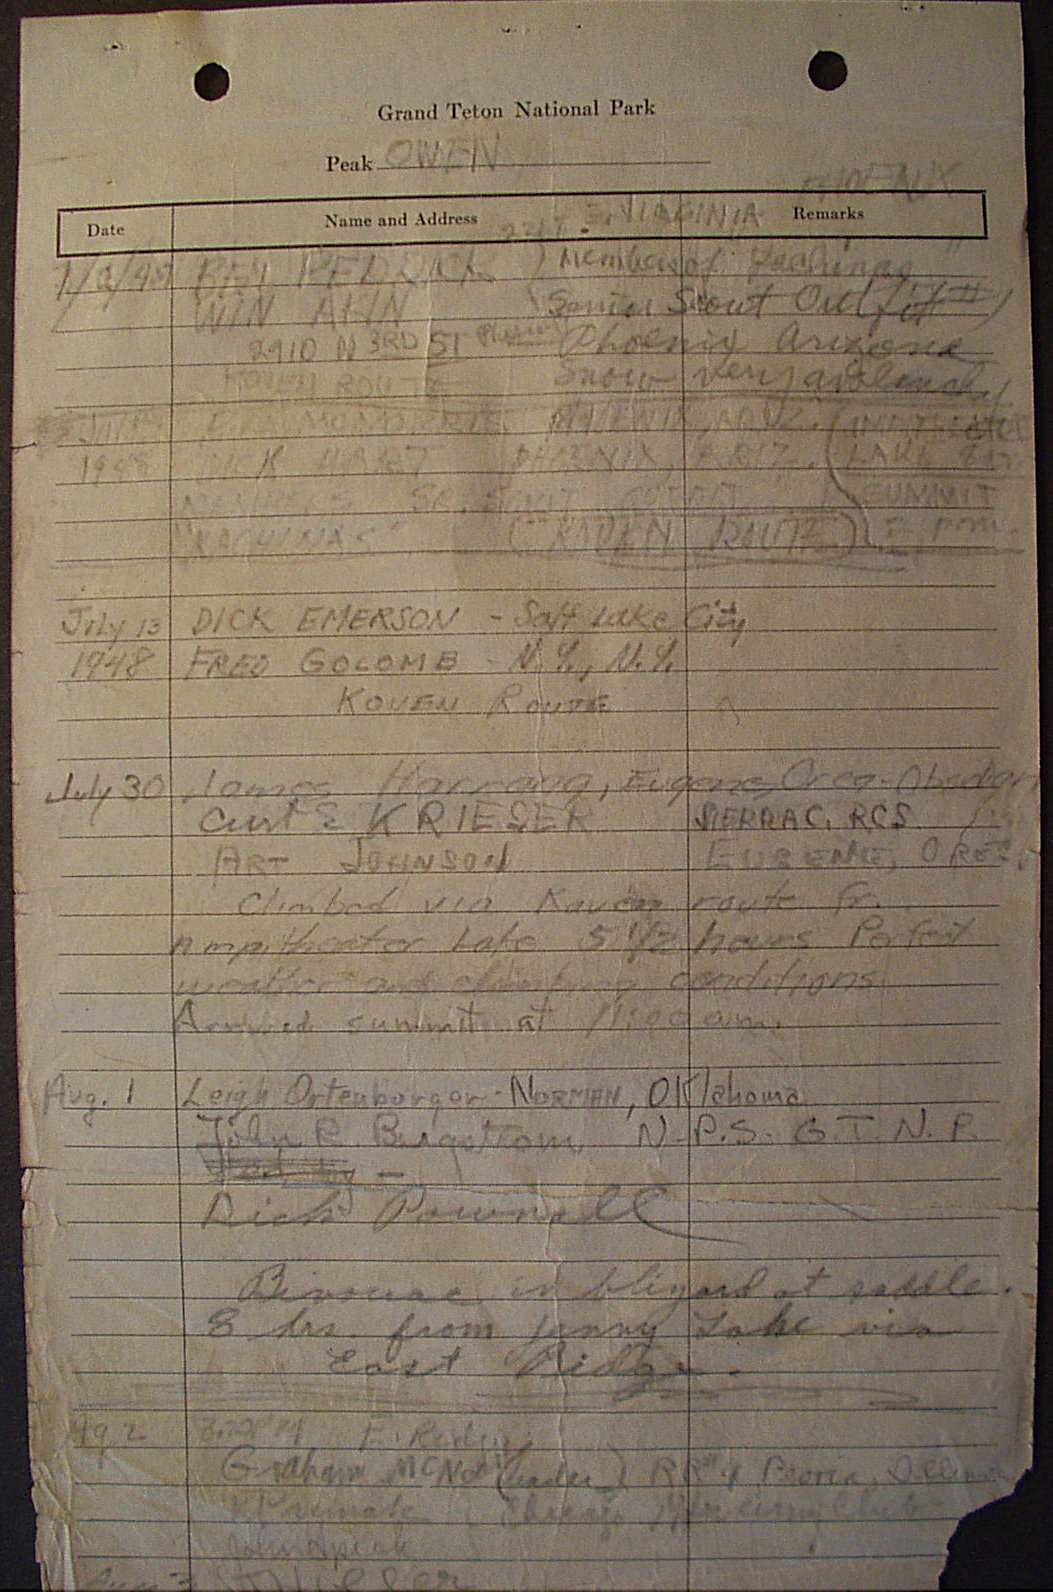 Grand Teton National Park
Peak OWEN
PHOENIX
Date Name and Address Remarks
2217 E. VIRGINIA
BEN PEDRICK Members of Kachinas
WIN AKIN Senior Scout Outfit
2910 N 3RD ST Phoenix Phoenix Arizona
KOVEN ROUTE Snow very
PHOENIX, ARIZ.
1948 DICK HART PHOENIX, ARIZ. LAKE
MEMBERS SR. SCOUT OUTFIT SUMMIT
"KACHINAS" (KOVEN ROUTE) P.M.
July 13 DICK EMERSON - Salt Lake City
1948 FRED GOLOMB - N.Y., N.Y.
KOVEN ROUTE
July 30 James Harrang, Eugene, Oreg - Obsidian
Curt E KRIESER MERRAC, RCS
ART JOHNSON EUGENE, ORE.
Climbed via Koven route fr.
Ampitheater Lake 5 1/2 hours Perfect
weather and climbing conditions
Arrived summit at 11:00 am.
Aug. 1 Leigh Ortenburger - NORMAN, OKlahoma
John R. Burgstrom N.P.S. G.T.N.P.
Dick Pownall
Bivouac in blizard at saddle.
8 hrs. from Jenny Lake via
East Ridge.
Aug 2 E. Ridge
Graham McNee (leader) RR #4 Peoria, Illinois
Chicago Club
John Speck